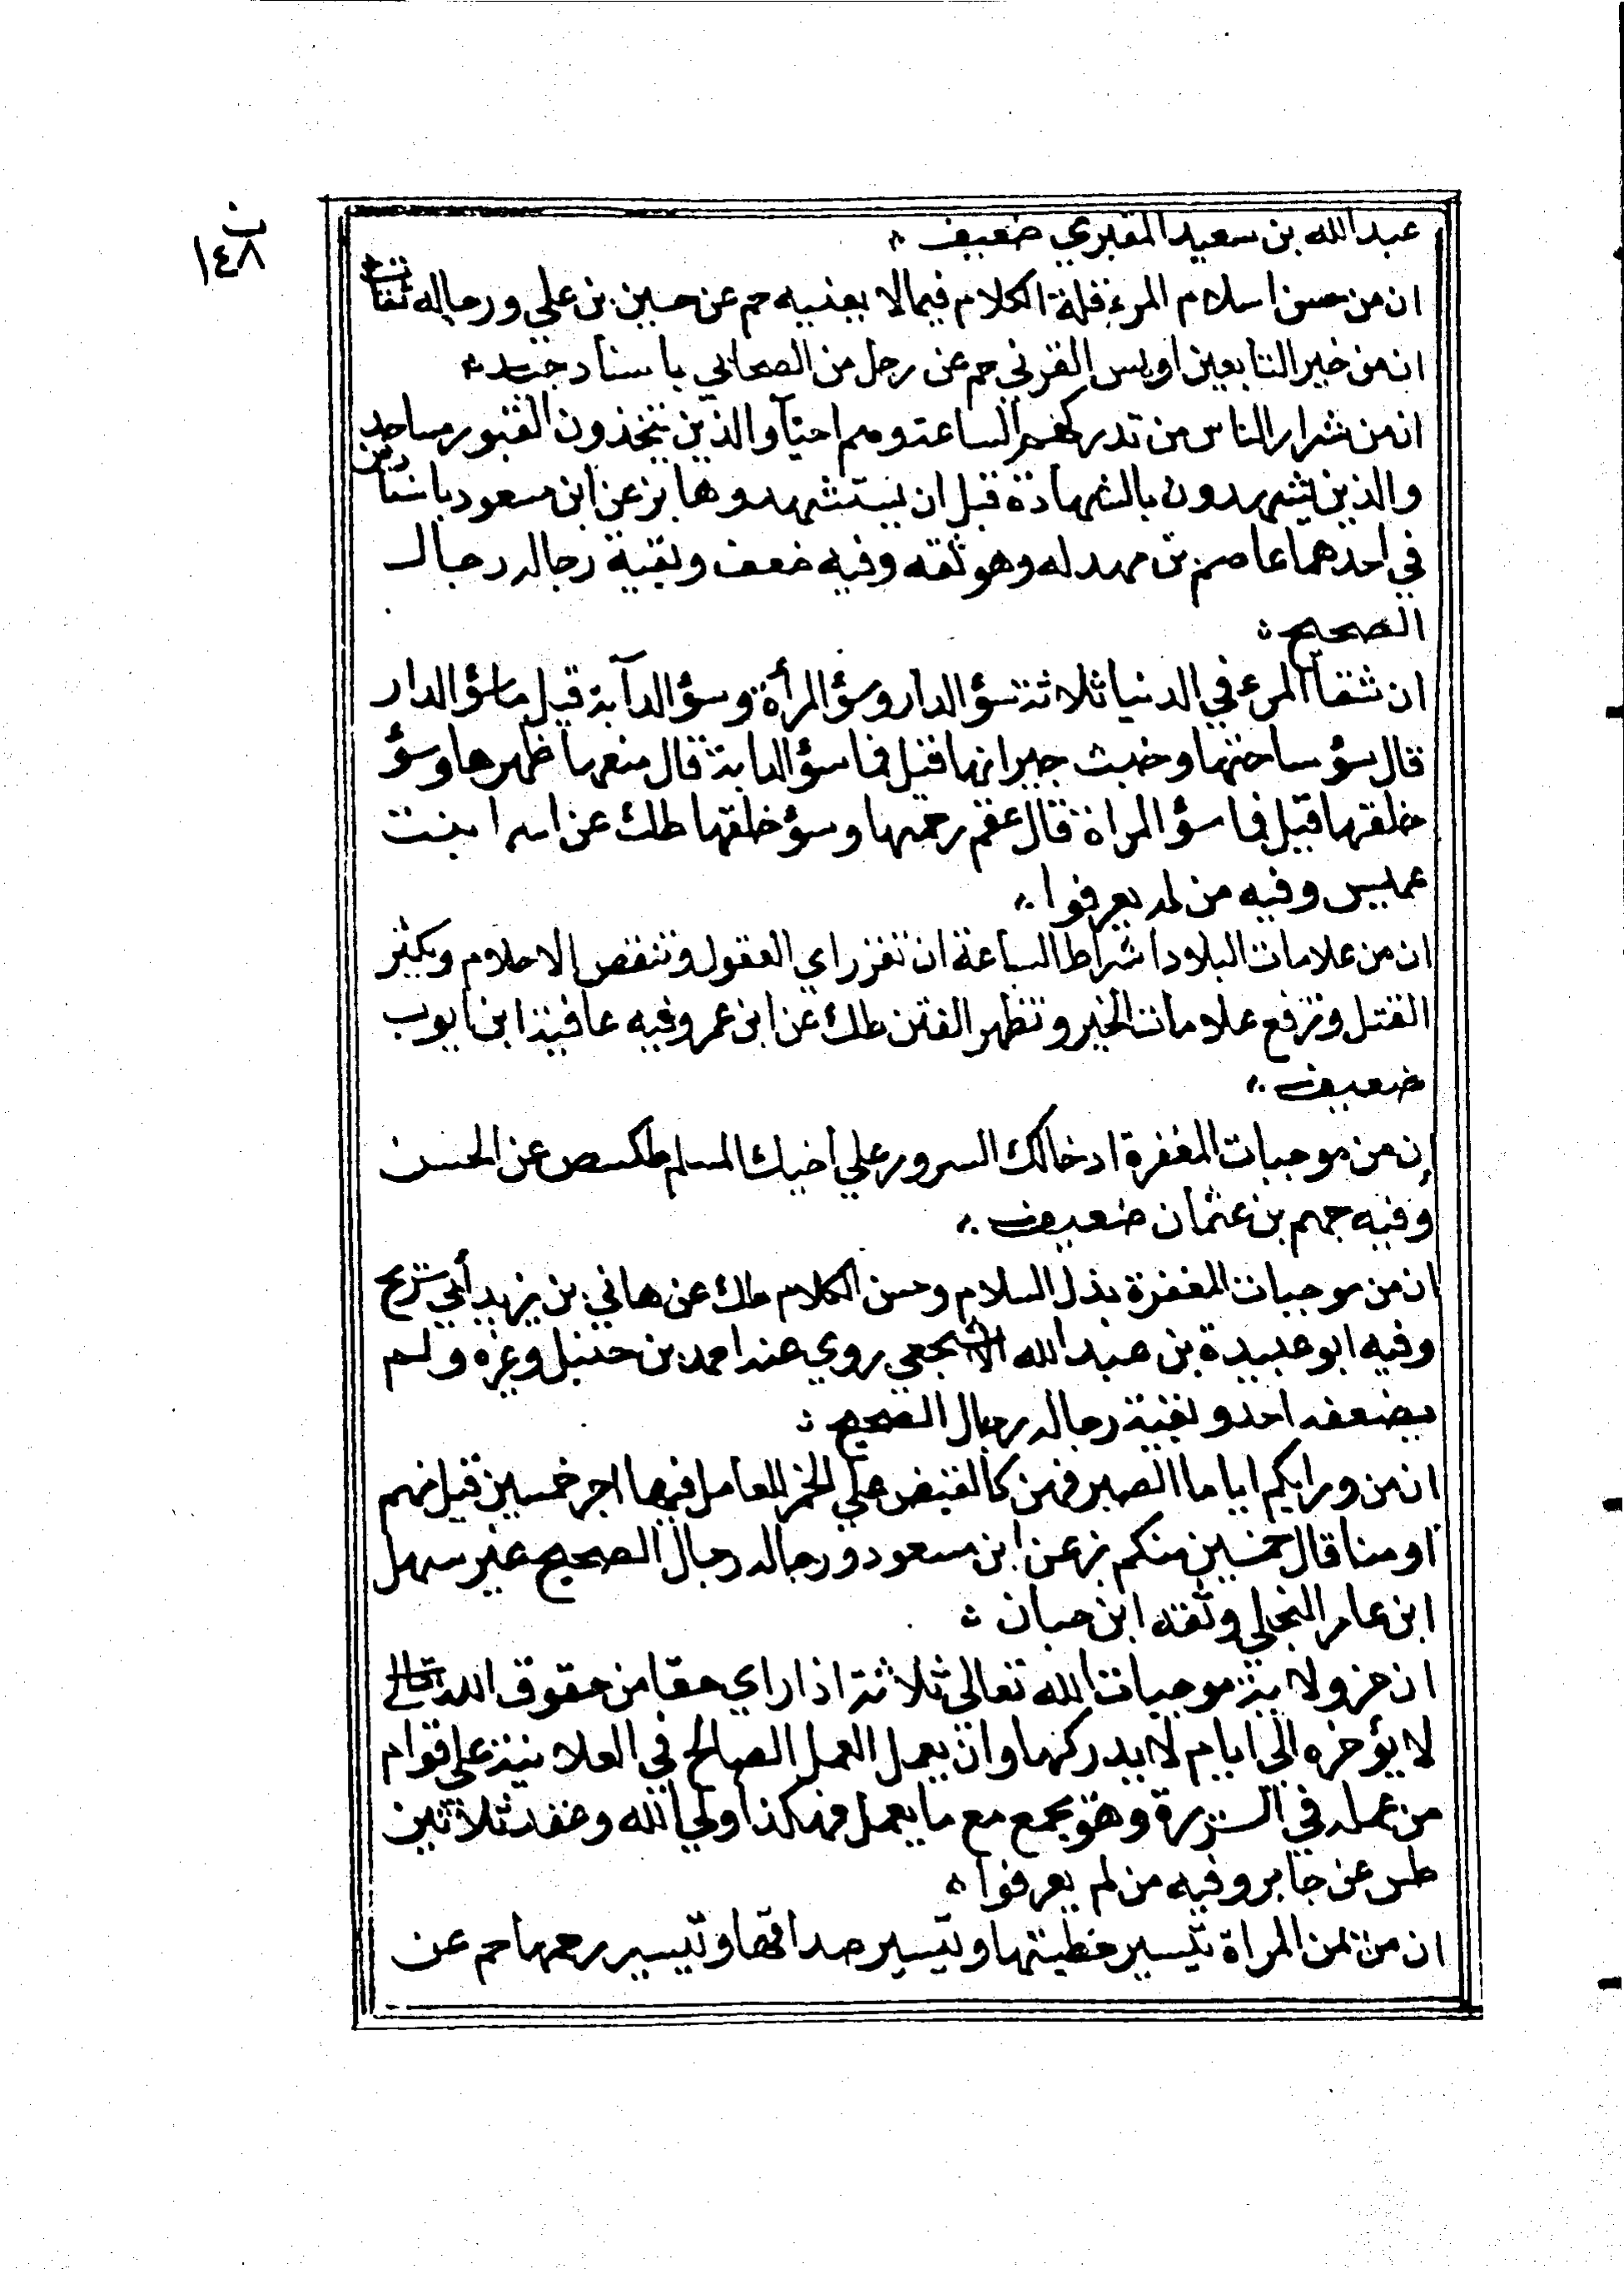 ب
١٤٨
عبد الله بن سعيد المقبري ضعيف
ان من حسن اسلام المرء قلة الكلام فيما لا يعنيه حم عن حسين بن علي ورجاله ثقات
ان من خير التابعين اويس القرني حم عن رجل من الصحابي باسناد جيد
ان من شرار الناس من تدركهم الساعة وهم احيآ والذين يتخذون القبور مساجد
والذين يشهدون بالشهادة قبل ان يستشهدوها بز عن ابن مسعود باسنادين
في احدهما عاصم بن بهدله وهو ثقه وفيه ضعف وبقية رجاله رجال
الصحيح
ان شقآ المرء في الدنيا ثلاثة سؤ الدار وسؤ المرأة وسؤ الدآبة قيل ما سؤ الدار
قال سؤ ساحتها وخبث جيرانها قيل فما سؤ الدابة قال منعها ظهرها وسؤ
خلقها قيل فما سؤ المراة قال عقم رحمها وسؤ خلقها طك عن اسما بنت
عميس وفيه من لم يعرفوا
ان من علامات البلا واشراط الساعة ان تعزراي العقول وتنقص الاحلام ويكثر
القتل وترفع علامات الخير وتظهر الفتن طك عن ابن عمر وفيه عافية ابن ايوب
ضعيف
إن من موجبات المغفرة ادخالك السرور على اخيك المسلم طكسص عن الحسن
وفيه جهم بن عثمان ضعيف
ان من موجبات المغفرة بذل السلام وحسن الكلام طك عن هاني بن يزيد أبي شريح
وفيه ابو عبيدة بن عبد الله الاشجعي روي عند احمد بن حنبل وغيره ولم
يضعفه احد وبقية رجاله رجال الصحيح
ان من ورايكم اياما الصبر فيهن كالقبض علي الجمر للعامل فيها اجر خمسين قيل منهم
او منا قال خمسين منكم بز عن ابن مسعود ورجاله رجال الصحيح غير سهل
ابن عامر البجلي وثقه ابن حبان
ان من ولاية الله تعالى ثلاثة اذا راي حقا من حقوق الله تعالى
لا يؤخره الى ايام لا يدركها وان يعمل العمل الصالح في العلانية علي قوام
من عمله في السريرة وهو يجمع مع ما يعمل فهكذا ولي الله وعقد ثلاثين
طس عن جابر وفيه من لم يعرفوا
ان من يمن المراة تيسير خطبتها وتيسير صداقها وتيسير رحمها حم عن